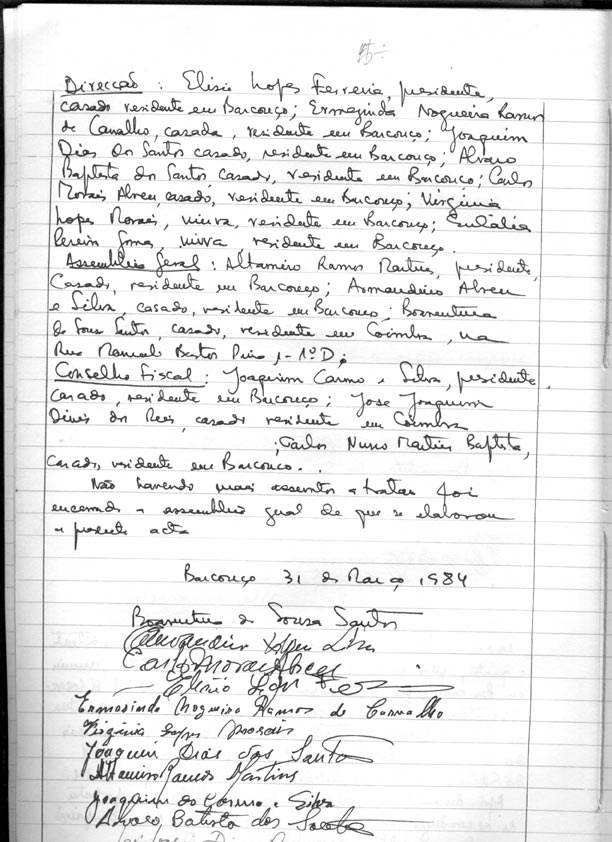 Direcção: Elisio Lopes Ferreira, presidente,
casado residente em Barcouço; Ermezinda Nogueira Ramos
de Carvalho, casada, residente em Barcouço; Joaquim
Dias dos Santos casado, residente em Barcouço; Alvaro
Baptista dos Santos, casado, residente em Barcouço; Carlos
Morais Abreu, casado, residente em Barcouço; Virginia
Lopes Morais, viuva, residente em Barcouço; Eulália
Pereira Gomes, viuva residente em Barcouço.
Assembleia Geral: Altamiro Ramos Martins, presidente,
casado, residente em Barcouço; Armandino Abreu
e Silva, casado, residente em Barcouço; Boaventura
de Sousa Santos, casado, residente em Coimbra, na
Rua Manuel 1-1º D;
Conselho Fiscal: Joaquim Carmo e Silva, presidente.
casado, residente em Barcouço; Jose Joaquim
Dinis dos Reis, casado residente em Coimbra
; Carlos Nuno Martins Baptista,
casado, residente em Barcouço..
Não havendo mais assuntos a tratar foi
encerrada a assembleia geral de que se elaborou
a presente acta
Barcouço 31 de Março 1984
Boaventura de Sousa Santos
Carlos Morais Abreu
Elisio Lopes
Ermesinda Nogueira Ramos de Carvalho
Virginia Lopes Morais
Joaquim Dias dos Santos
Altamiro Ramos Martins
Joaquim do Carmo e Silva
Alvaro Batista dos Santos